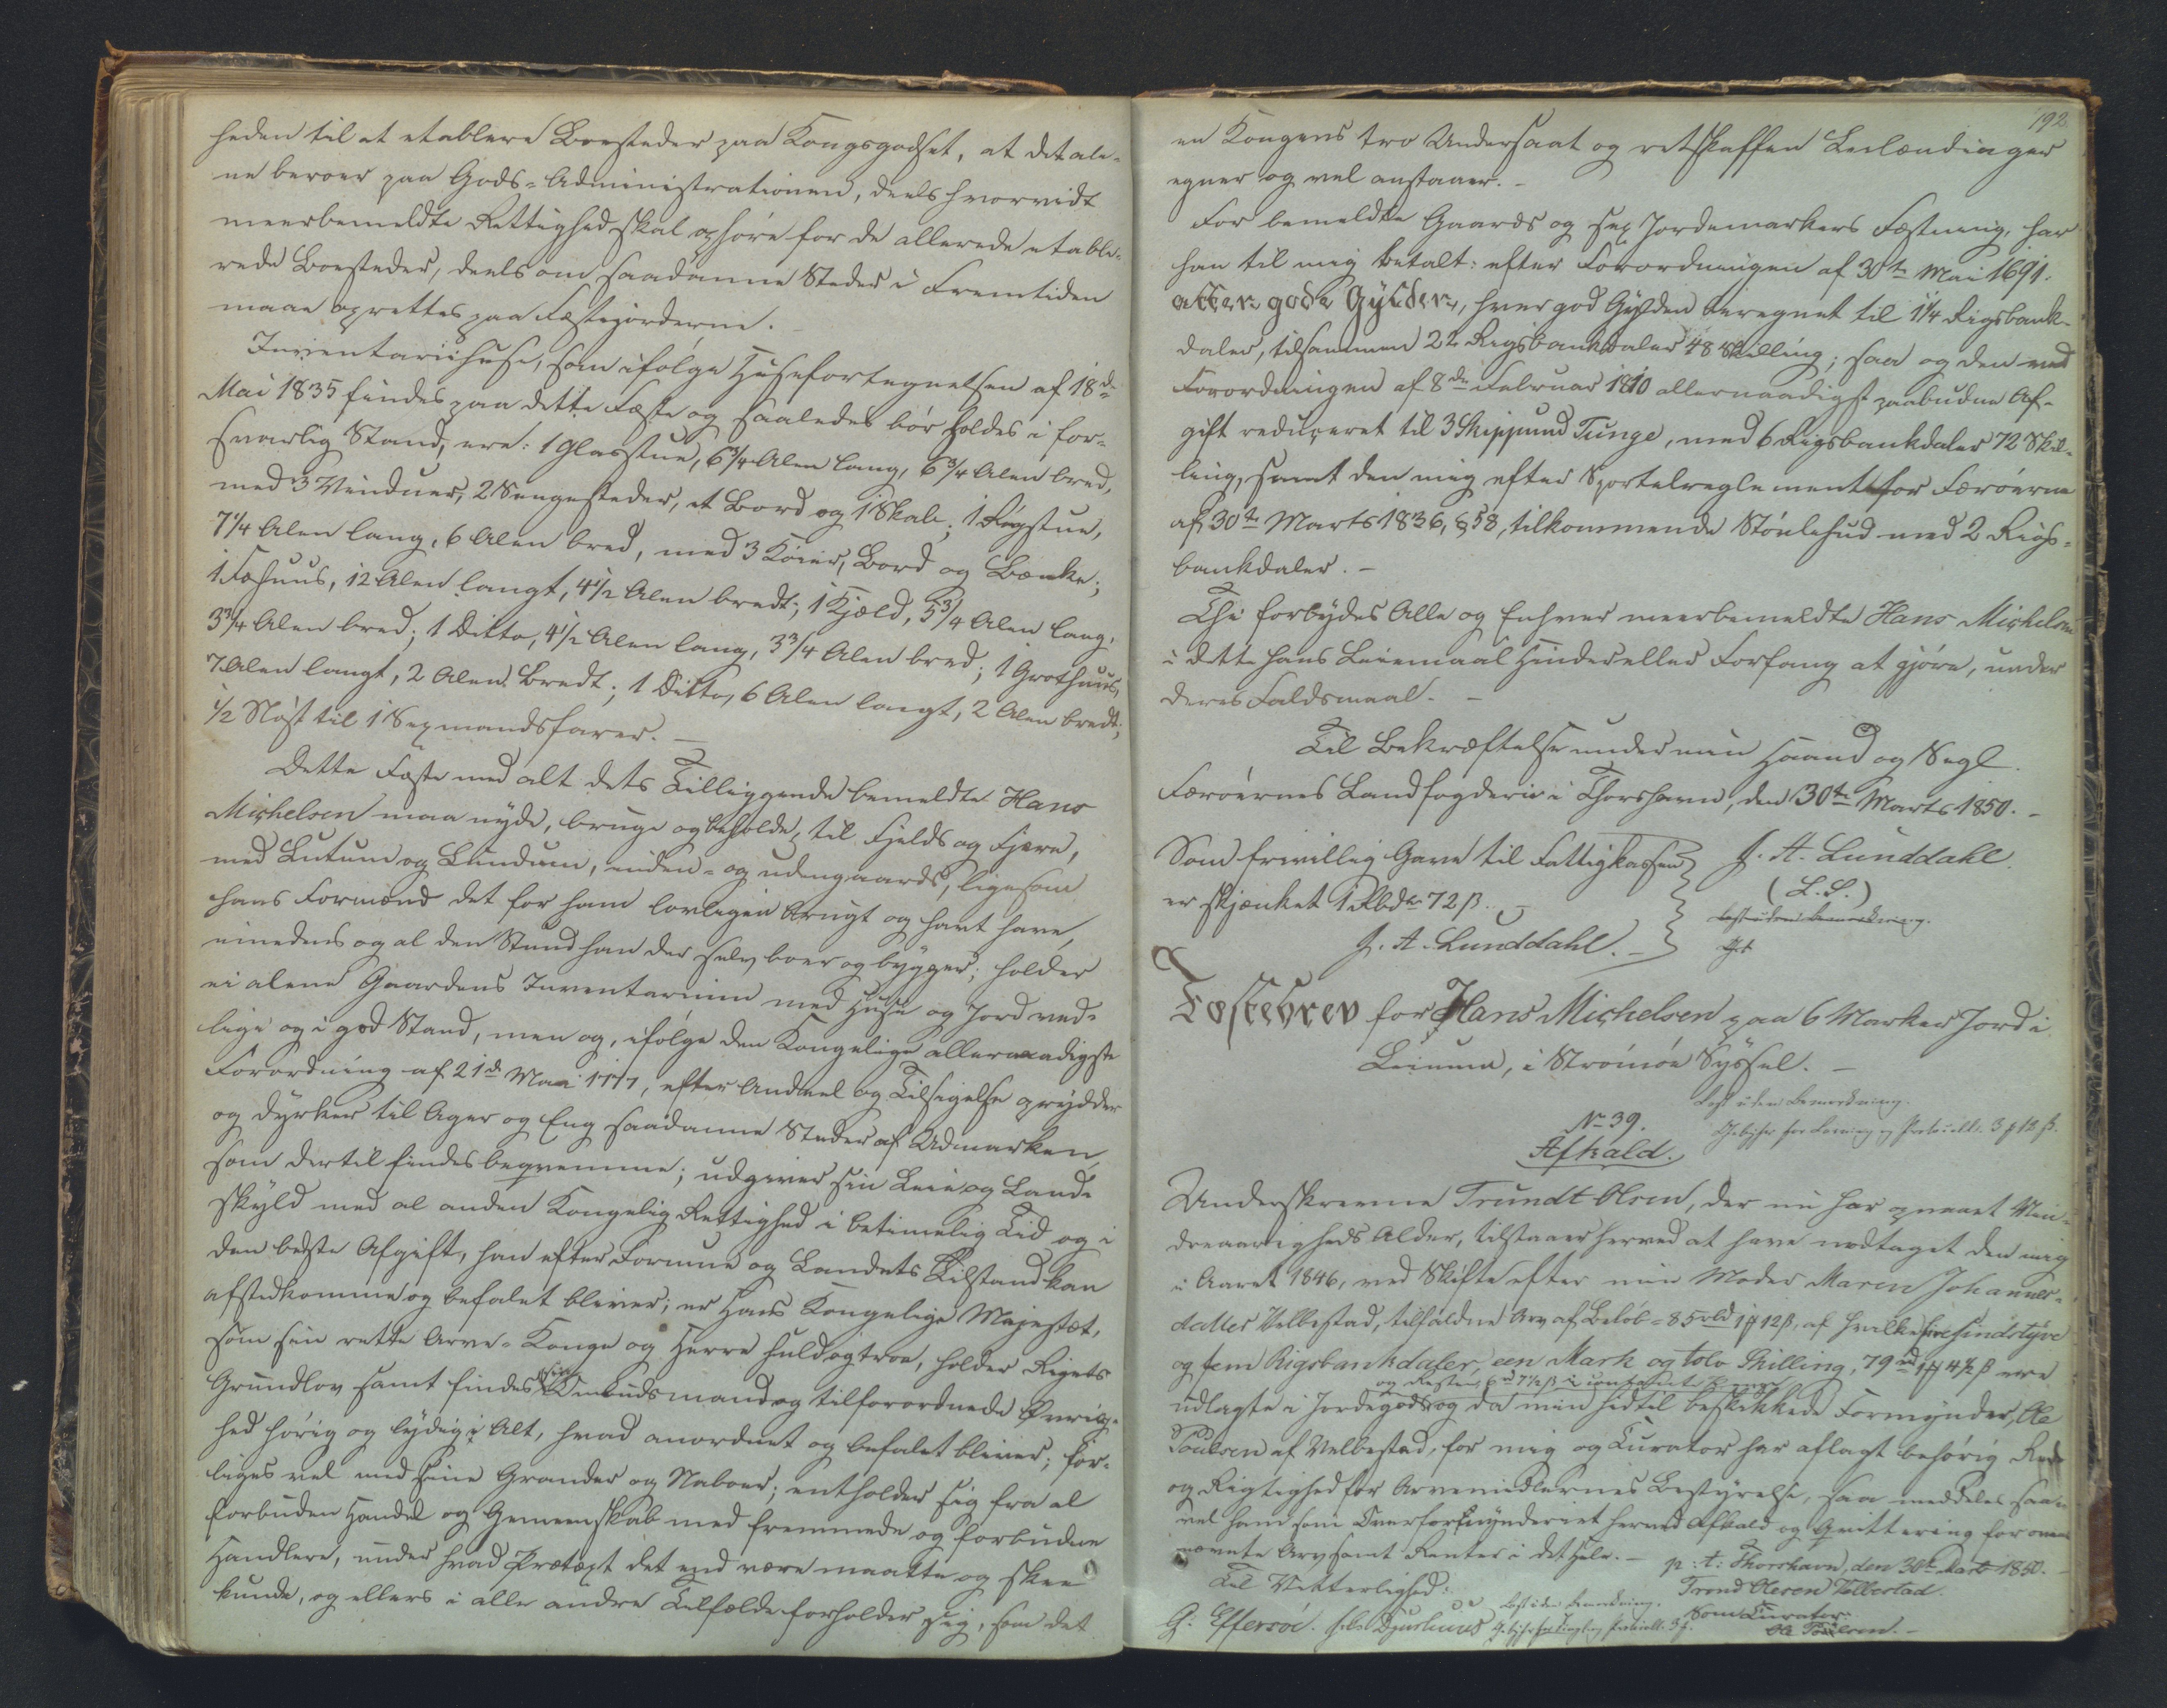 heden til at etablere Boesteder paa Kongsgodset, at det ale-
ne beroer paa Gods-Administrationen, deels hvorvidt
meerbemeldte Rettighed skal ophøre for de allerede etable-
rede Boesteder, deels om saadanne Steder i Fremtiden
maae oprettes paa Fæstejorderne.
Inventariihuse, som ifølge Husefortegnelsen af 18de
Mai 1835 findes paa dette Fæste og saaledes bør holdes i for-
svarlig Stand, ere: 1 Glasstue, 6¾ Alen lang, 6¾ Alen bred,
med 3 Vinduer, 2 Sengesteder, et Bord og 1 Skab; 1 Røgstue,
7¼ Alen lang, 6 Alen bred, med 3 Køier, Bord og Bænke;
1 Fæhuus, 12 Alen langt, 4½ Alen bredt; 1 Kjæld, 5¾ Alen lang,
3¾ Alen bred; 1 Ditto, 4½ Alen lang, 3¾ Alen bred; 1 Grothuus,
7 Alen langt, 2 Alen bredt; 1 Ditto, 6 Alen langt, 2 Alen bredt;
½ Nøst til 1 Sexmandsfarer. —
Dette Fæste med alt dets Tilliggende bemeldte Hans
Michelsen maa nyde, bruge og beholde, til Fjelds og Fjære,
med Lutum og Lundum, inden- og udengaards, ligesom
hans Formænd det før ham lovligen brugt og havt have,
imedens og al den Stund han der selv boer og bygger; holder
ei alene Gaardens Inventarium med Huse og Jord ved-
lige og i god Stand, men og, ifølge den Kongelige allernaadigste
Forordning af 21de Mai 1777, efter Anviisl og Tilsigelse oprydder
og dyrker til Ager og Eng saadanne Steder af Udmarken,
som dertil findes beqvemme; udgiver sin Leie og Land-
skyld med al anden Kongelig Rettighed i betimelig Tid og i
den bedste Afgift, han efter Formue og Landets Tilstand kan
afstedkomme og befalet bliver; er Hans Kongelige Majestæt,
som sin rette Arve-Konge og Herre huld og troe, holder Rigets
Grundlov samt findes sin Ombudsmand og tilforordnede Øvrig-
hed hørig og lydig i Alt, hvad anordnet og befalet bliver; for-
liges vel med sine Grander og Naboer; entholder sig fra al
forbuden Handel og Gemeenskab med fremmede og forbudne
Handlere, under hvad Prætext det end være maatte og skee
kunde, og ellers i alle andre Tilfælde forholder sig, som det
192
en Kongens tro Undersaat og retskaffen Leilændinger
egner og vel anstaaer. —
For bemeldte Gaards og sex Jordemarkers Fæstning, har
han til mig betalt: efter Forordningen af 30te Mai 1691.
atten gode Gylden, hver god Gylden beregnet til 1¼ Rigsbank-
daler, tilsammen 22 Rigsbankdaler 48 Skilling; saa og den ved
Forordningen af 8de Februar 1810 allernaadigst paabudne Af-
gift reduceret til 3 Skippund Tunge, med 6 Rigsbankdaler 72 Skil-
ling, samt den mig efter Sportelreglementet for Færøerne
af 30te Marts 1836, § 58, tilkommende Støvlehud med 2 Rigs-
bankdaler. —
Thi forbydes Alle og Enhver meerbemeldte Hans Michelsen
i dette hans Leiemaal Hinder eller Forfang at gjøre, under
deres Faldsmaal. —
Til Bekræftelse under min Haand og Segl.
Færøernes Landfogderie i Thorshavn, den 30te Marts 1850. —
Som frivillig Gave til Fattigkassen
er skjænket 1 Rbdr 72 ß. —
J. A. Lunddahl. —
J. A. Lunddahl.
(L. S.)
Læst uden Bemærkning.
Fæstebrev for Hans Michelsen paa 6 Marker Jord i
Leinum, i Strømøe Syssel. —
Læst uden Bemærkning.
Gebyhr for Læsning og Protocoll. 3 ℳ 12 ß.
No 39.
Afkald.
Underskrevne Trundt Olsen, der nu har opnaaet Min-
dreaarigheds Alder, tilstaaer herved at have modtaget den mig
i Aaret 1846, ved Skifte efter min Moder Maren Johannes-
datter Velbestad, tilfaldne Arv af Beløb = 85 rbd 1 ℳ 12 ß, af hvilke fiirsindstyve
og fem Rigsbankdaler, een Mark og tolv Skilling, 79 rd 1 ℳ 4½ ß ere
og Resten 6 rd 7½ ß i contante Penge
udlagte i Jordegods og da min hidtil beskikkede Formynder, Ole
Poulsen af Velbestad, for mig og Curator har aflagt behørig Rede
og Rigtighed for Arvemidlernes Bestyrelse, saa meddeles saa-
vel ham som Overformynderiet herved Afkald og Qvittering for oven-
nævnte Arv samt Renter i det Hele. — p: t: Thorshavn, den 30te Marts 1850. —
Til Vitterlighed:
Trond Olesen Velbestad.
G. Effersøe. H. Djurhuus
Læst uden Bemærkning.
Som Curator:
Ole Poulsen. —